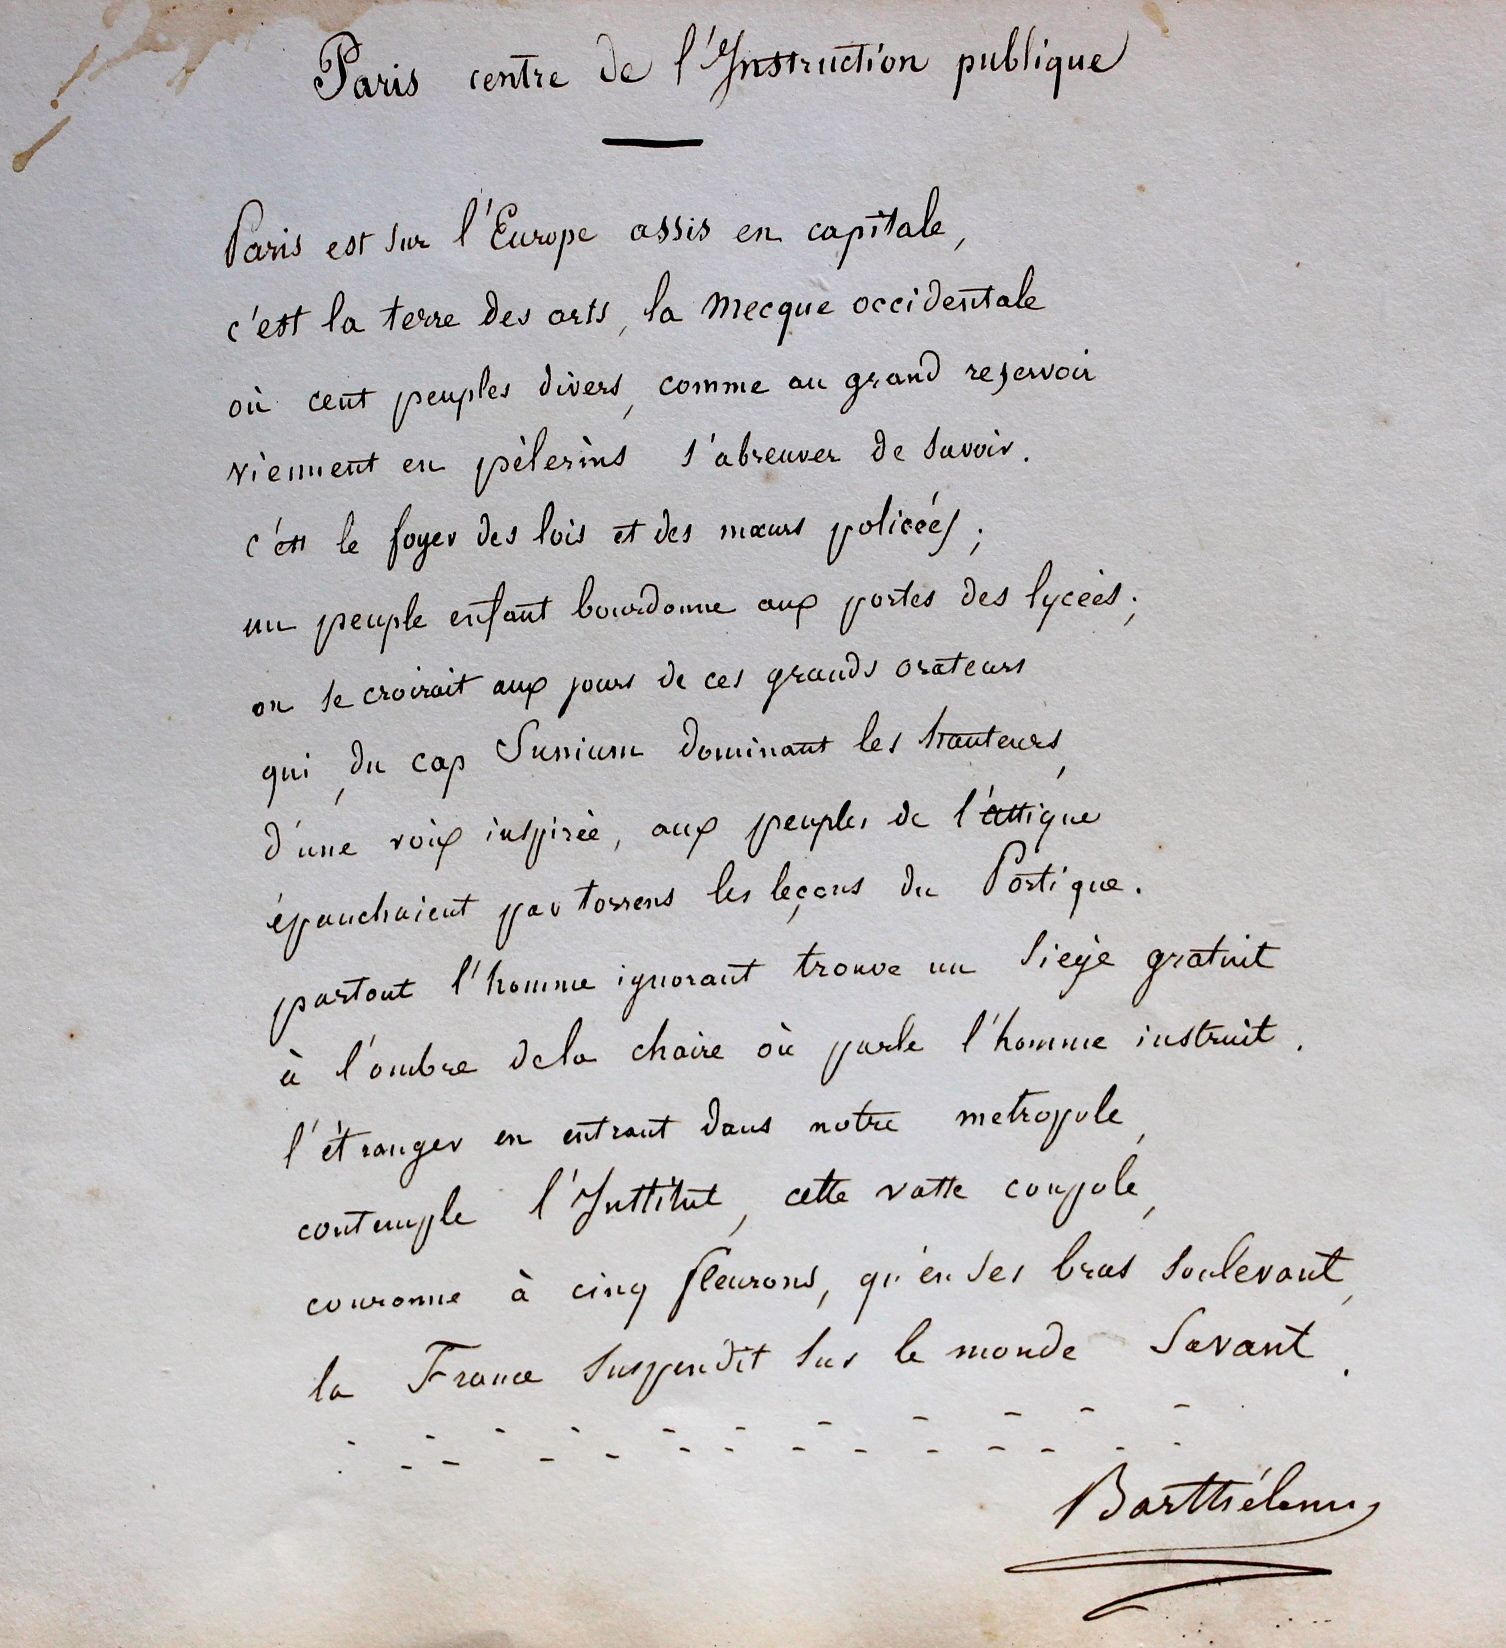 Paris centre de l'Instruction publique
Paris est sur l'Europe assis en capitale,
c'est la terre des arts, la Mecque occidentale
où cent peuples divers, comme au grand reservoir
viennent en pèlerins s'abreuver de savoir.
c'est le foyer des lois et des mœurs policées ;
un peuple enfant bourdonne aux portes des lycées ;
on se croirait aux jours de ces grands orateurs
qui, du cap Sunium dominant les hauteurs,
d'une voix inspirée, aux peuples de l'attique
épanchaient par torrens les leçons du Portique.
partout l'homme ignorant trouve un siège gratuit
à l'ombre de la chaire où parle l'homme instruit.
l'étranger en entrant dans notre metropole,
contemple l'Institut, cette vaste coupole,
couronne à cinq fleurons, qu'en ses bras soulevant,
la France suspendit sur le monde savant.
Barthélemy